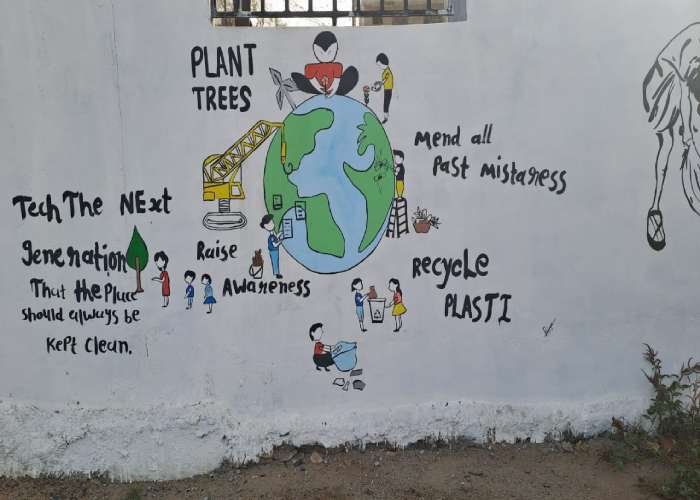 PLANT
TREES
Mend all
Past Mistaness
Tech The NExt
generation
That the Place
should always be
Kept clean.
Raise
Awareness
Recycle
PLASTI